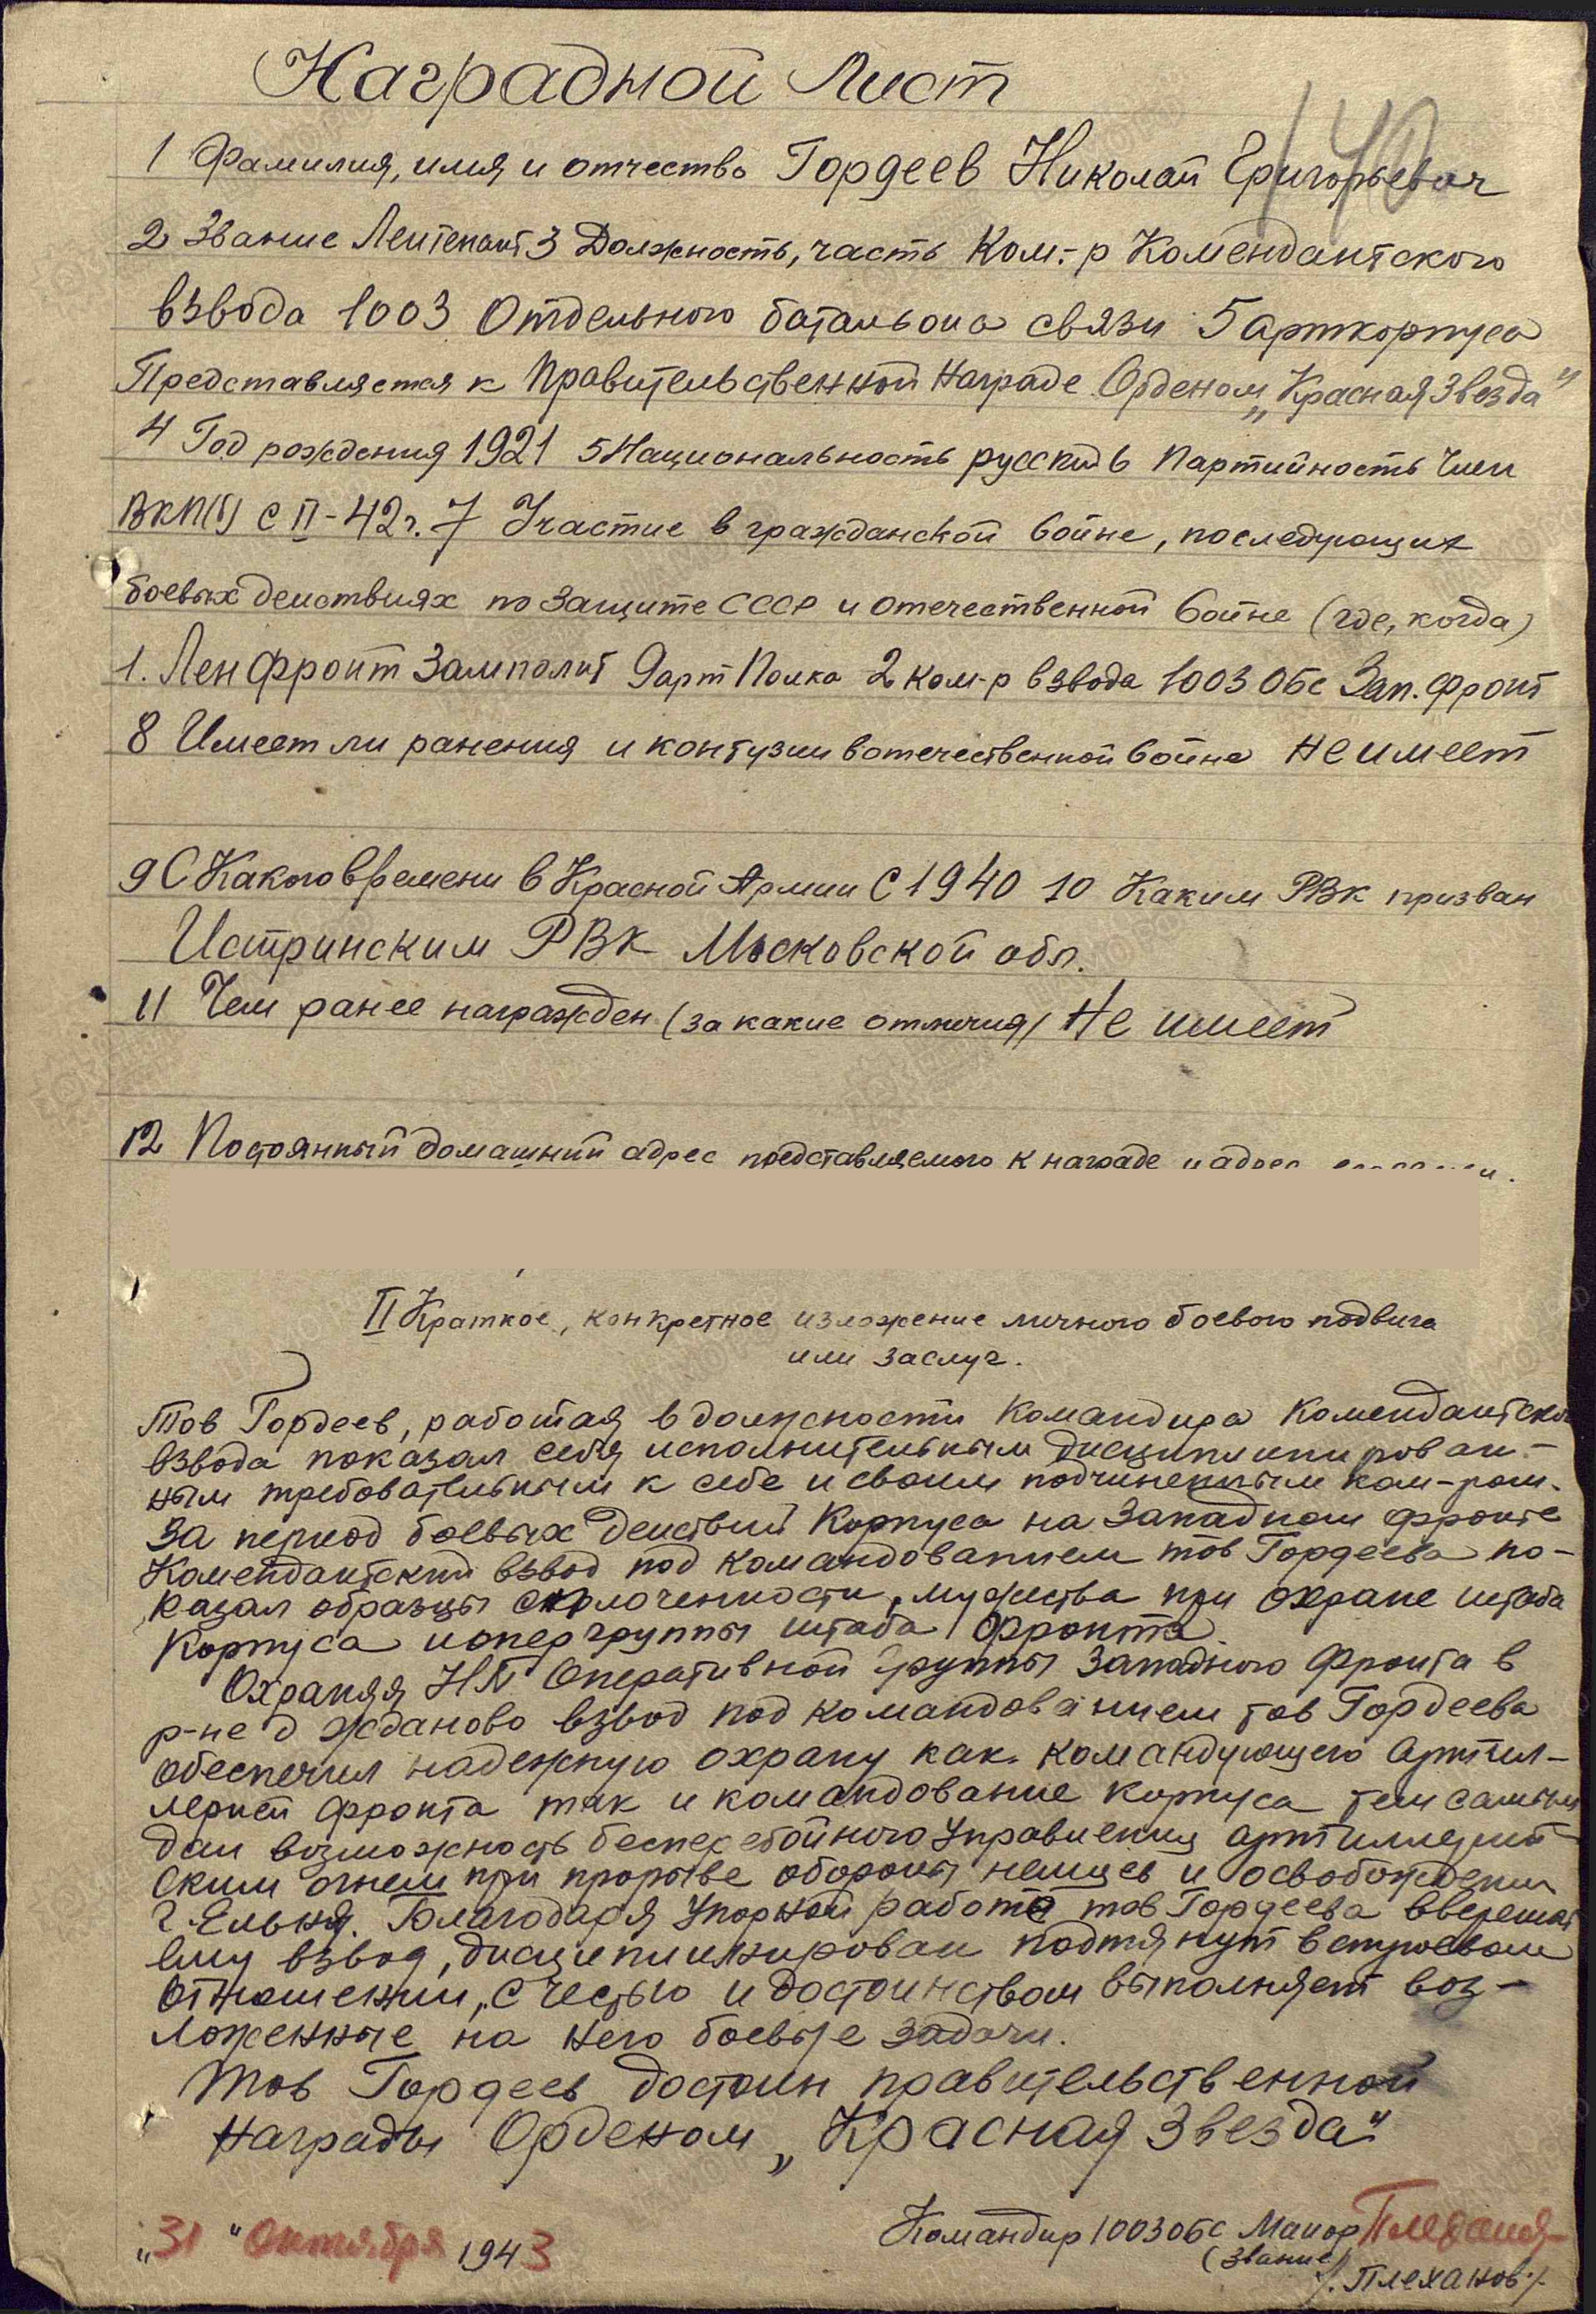 Наградной Лист
140
1 Фамилия, имя и отчество Гордеев Николай Григорьевич
2 Звание Лейтенант 3 Должность, часть Ком.-р Комендантского
взвода 1003 Отдельного батальона связи 5 арткорпуса
Представляется к Правительственной Награде Орденом „Красная Звезда"
4 Год рождения 1921 5 Национальность русский 6 Партийность Член
ВКП(б) с II-42г. 7 Участие в гражданской войне, последующих
боевых действиях по защите СССР и отечественной войне (где, когда)
1. Ленфронт Замполит 9 артПолка 2 ком-р взвода 1003 ОБС Зап. фронт
8 Имеет ли ранения и контузии в отечественной войне Не имеет
9 С Какого времени в Красной Армии С 1940 10 Каким РВК призван
Истринским РВК Московской обл.
11 Чем ранее награжден (за какие отличия) Не имеет
12 Постоянный домашний адрес представляемого к награде и адрес
II Краткое, конкретное изложение личного боевого подвига
или заслуг.
Тов Гордеев, работая в должности Командира Комендантского
взвода показал себя исполнительным дисциплинирован-
ным требовательным к себе и своим подчиненным ком-ром.
За период боевых действий Корпуса на Западном фронте
Комендантский взвод под командованием тов Гордеева по-
казал образцы сколоченности, мужества при охране штаба
Корпуса и опергруппы штаба Фронта.
Охраняя НП Оперативной группы Западного Фронта в
р-не д Жданово взвод под командованием тов Гордеева
обеспечил надежную охрану как командующего артил-
лерией фронта так и командование корпуса тем самым
дал возможность бесперебойного управления артиллерий-
ским огнем при прорыве обороны немцев и освобождении
г. Ельня. Благодаря Упорной работе тов Гордеева вверенный
ему взвод, дисциплинирован подтянут в строевом
отношении, с честью и достоинством выполняет воз-
ложенные на него боевые задачи.
Тов Гордеев достоин правительственной
Награды Орденом „Красная Звезда"
„31" Октября 1943
Командир 1003 ОБС Майор
(звание)
/. Плеханов ./